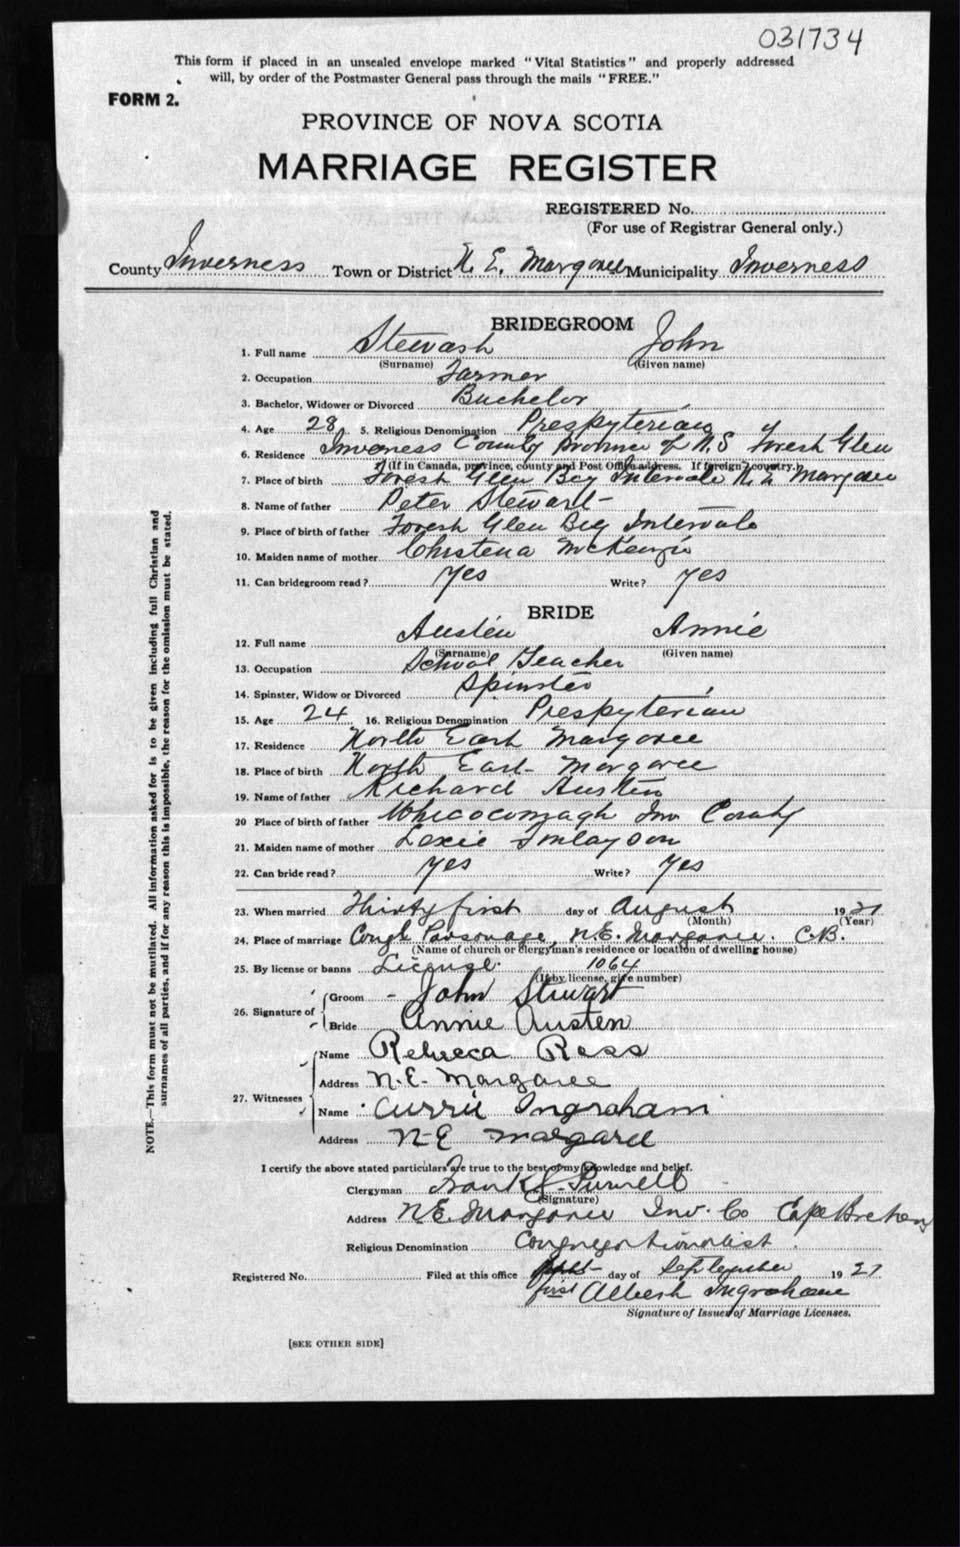 031734
This form if placed in an unsealed envelope marked "Vital Statistics" and properly addressed
will, by order of the Postmaster General pass through the mails "FREE."
FORM 2.
PROVINCE OF NOVA SCOTIA
MARRIAGE REGISTER
REGISTERED No.
(For use of Registrar General only.)
County Inverness Town or District N. E. Margaree Municipality Inverness
BRIDEGROOM
1. Full name Stewart John
(Surname) (Given name)
2. Occupation Farmer
3. Bachelor, Widower or Divorced Bachelor
4. Age 28 5. Religious Denomination Presbyterian
6. Residence Inverness County Province of N.S Forest Glen
(If in Canada, province, county and Post Office address. If foreign, country.)
7. Place of birth Forest Glen Beg Intervale N. E Margaree
8. Name of father Peter Stewart
9. Place of birth of father Forest Glen Beg Intervale
10. Maiden name of mother Christena McKenzie
11. Can bridegroom read? Yes Write? Yes
BRIDE
12. Full name Austen Annie
(Surname) (Given name)
13. Occupation School Teacher
14. Spinster, Widow or Divorced Spinster
15. Age 24 16. Religious Denomination Presbyterian
17. Residence North East Margaree
18. Place of birth North East Margaree
19. Name of father Richard Austen
20 Place of birth of father Whicocomagh Inv County
21. Maiden name of mother Lexie Finlayson
22. Can bride read? Yes Write? Yes
23. When married Thirty first day of August 1921
(Month) (Year)
24. Place of marriage Cong'l Parsonage, N.E. Margaree. C.B.
(Name of church or clergyman's residence or location of dwelling house)
25. By license or banns License. 1064
(If by license, give number)
26. Signature of Groom John Stewart
Bride Annie Austen
27. Witnesses Name Rebecca Ross
Address N.E. Margaree
Name Currie Ingraham
Address N-E Margaree
I certify the above stated particulars are true to the best of my knowledge and belief.
Clergyman Frank J. Purnell
(Signature)
Address N.E. Margaree Inv. Co Cape Breton
Religious Denomination Congregationalist.
Registered No. Filed at this office day of September 1921
first Albert Ingraham
Signature of Issuer of Marriage Licenses.
[SEE OTHER SIDE]
NOTE.—This form must not be mutilated. All information asked for is to be given including full Christian and
surnames of all parties, and if for any reason this is impossible, the reason for the omission must be stated.